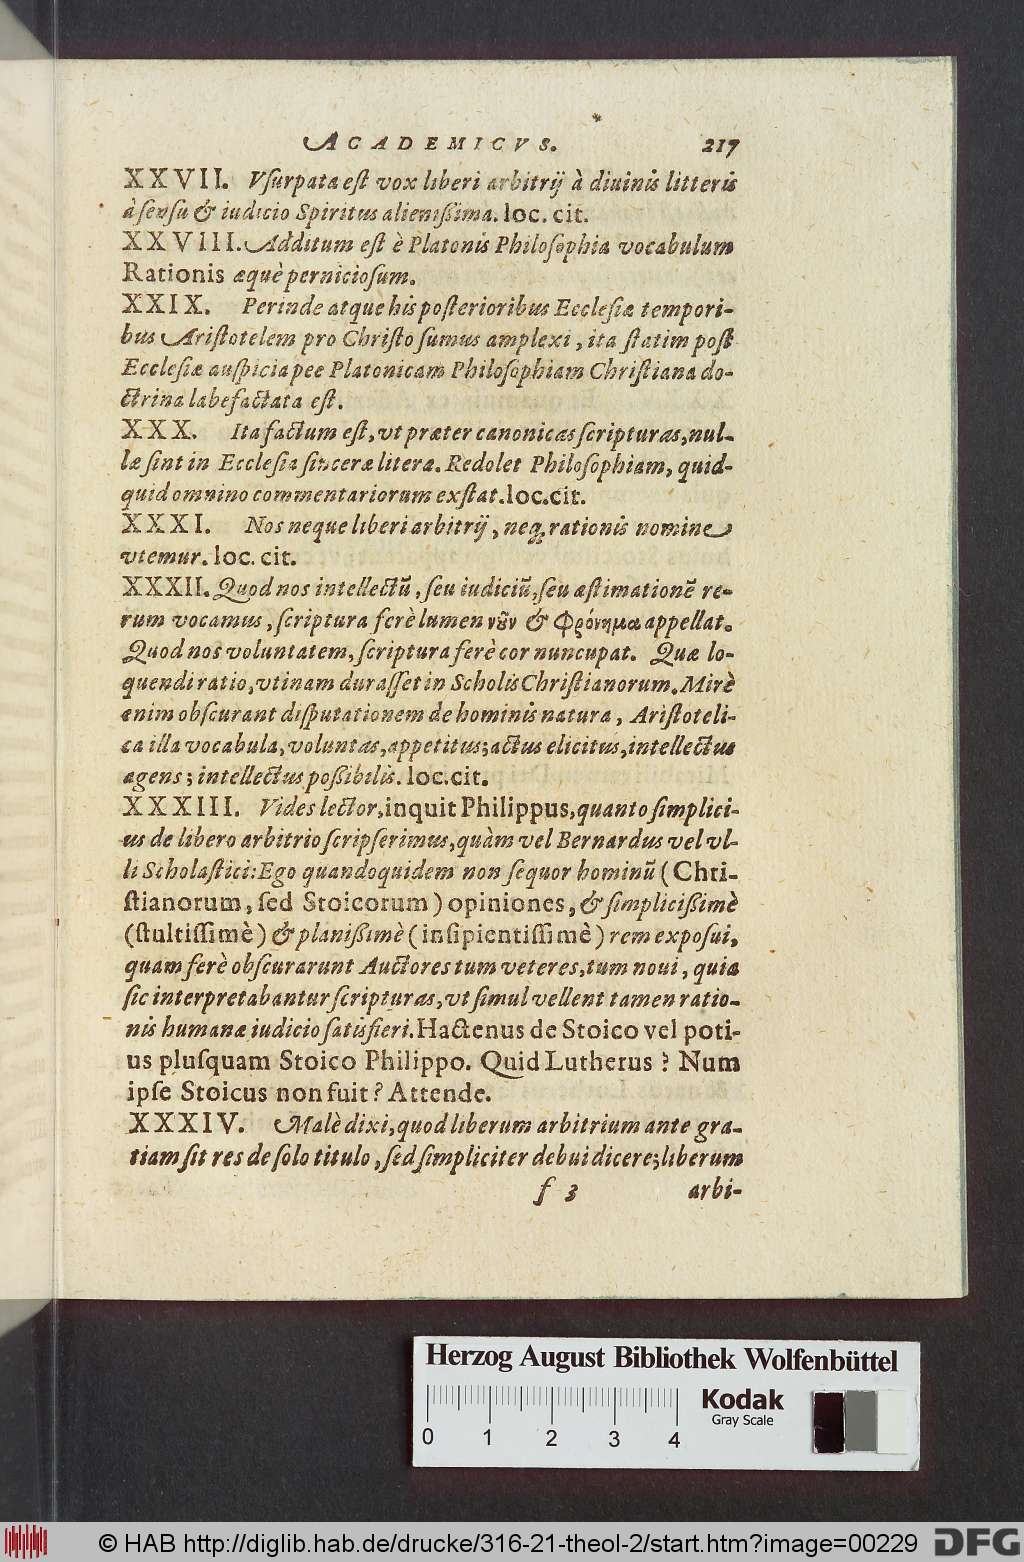 ACADEMICVS. 217
XXVII. Vſurpata eſt vox liberi arbitrij à diuinis litteris
à ſenſu & iudicio Spiritus alieniſſima. loc. cit.
XXVIII. Additum eſt è Platonis Philoſophia vocabulum
Rationis æquè pernicioſum.
XXIX. Perinde atque his poſterioribus Eccleſiæ tempori-
bus Ariſtotelem pro Chriſto ſumus amplexi, ita ſtatim poſt
Eccleſiæ auſpicia pee Platonicam Philoſophiam Chriſtiana do-
ctrina labefactata eſt.
XXX. Ita factum eſt, vt præter canonicas ſcripturas, nul-
læ ſint in Eccleſia ſinceræ literæ. Redolet Philoſophiam, quid-
quid omnino commentariorum exſtat. loc. cit.
XXXI. Nos neque liberi arbitrij, neq₃ rationis nomine
vtemur. loc. cit.
XXXII. Quod nos intellectũ, ſeu iudiciũ, ſeu æſtimationẽ re-
rum vocamus, ſcriptura ferè lumen νοῦν & Φρόνημα appellat.
Quod nos voluntatem, ſcriptura ferè cor nuncupat. Quæ lo-
quendi ratio, vtinam duraſſet in Scholis Chriſtianorum. Mirè
enim obſcurant diſputationem de hominis natura, Ariſtoteli-
ca illa vocabula, voluntas, appetitus; actus elicitus, intellectus
agens; intellectus poſſibilis. loc. cit.
XXXIII. Vides lector, inquit Philippus, quanto ſimplici-
us de libero arbitrio ſcripſerimus, quàm vel Bernardus vel vl-
li Scholaſtici: Ego quandoquidem non ſequor hominũ (Chri-
ſtianorum, ſed Stoicorum) opiniones, & ſimpliciſſimè
(ſtultiſſimè) & planiſſimè (inſipientiſſimè) rem expoſui,
quam ferè obſcurarunt Auctores tum veteres, tum noui, quia
ſic interpretabantur ſcripturas, vt ſimul vellent tamen ratio-
nis humanæ iudicio ſatisfieri. Hactenus de Stoico vel poti-
us pluſquam Stoico Philippo. Quid Lutherus? Num
ipſe Stoicus non fuit? Attende.
XXXIV. Malè dixi, quod liberum arbitrium ante gra-
tiam ſit res de ſolo titulo, ſed ſimpliciter debui dicere; liberum
f 3 arbi-
Herzog August Bibliothek Wolfenbüttel
Kodak
Gray Scale
0 1 2 3 4
© HAB http://diglib.hab.de/drucke/316-21-theol-2/start.htm?image=00229 DFG